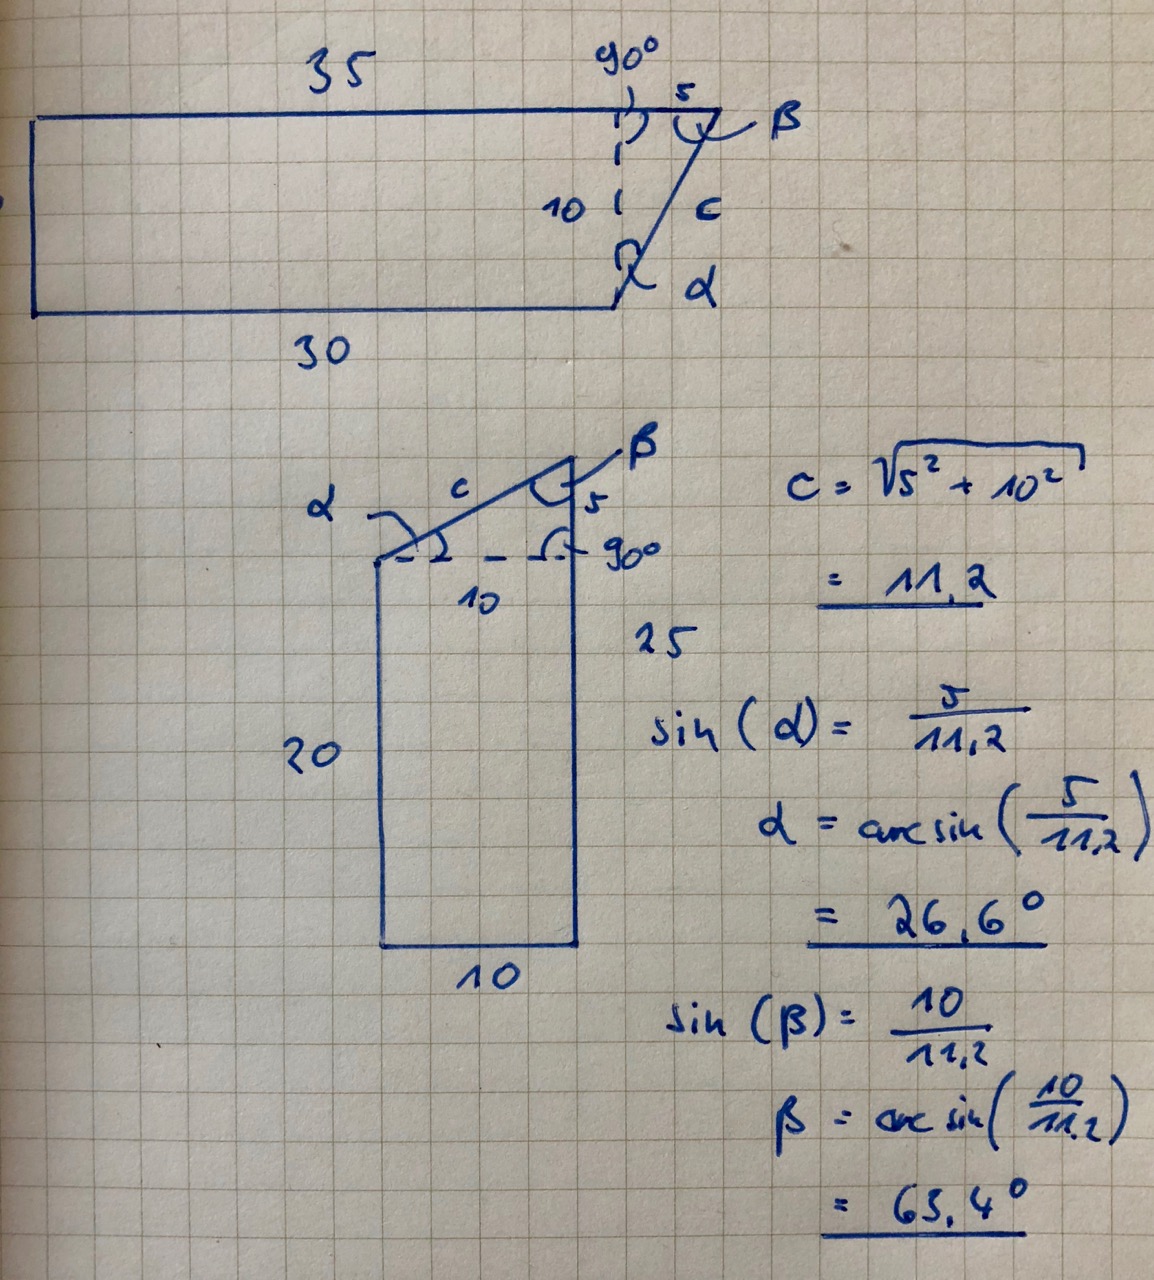 35
90°
5
β
10
c
α
30
β
α
c
5
90°
10
25
20
10
c = √5² + 10²
= 11,2
sin (α) = 5/11,2
α = arcsin (5/11,2)
= 26,6°
sin (β) = 10/11,2
β = arcsin (10/11,2)
= 63,4°